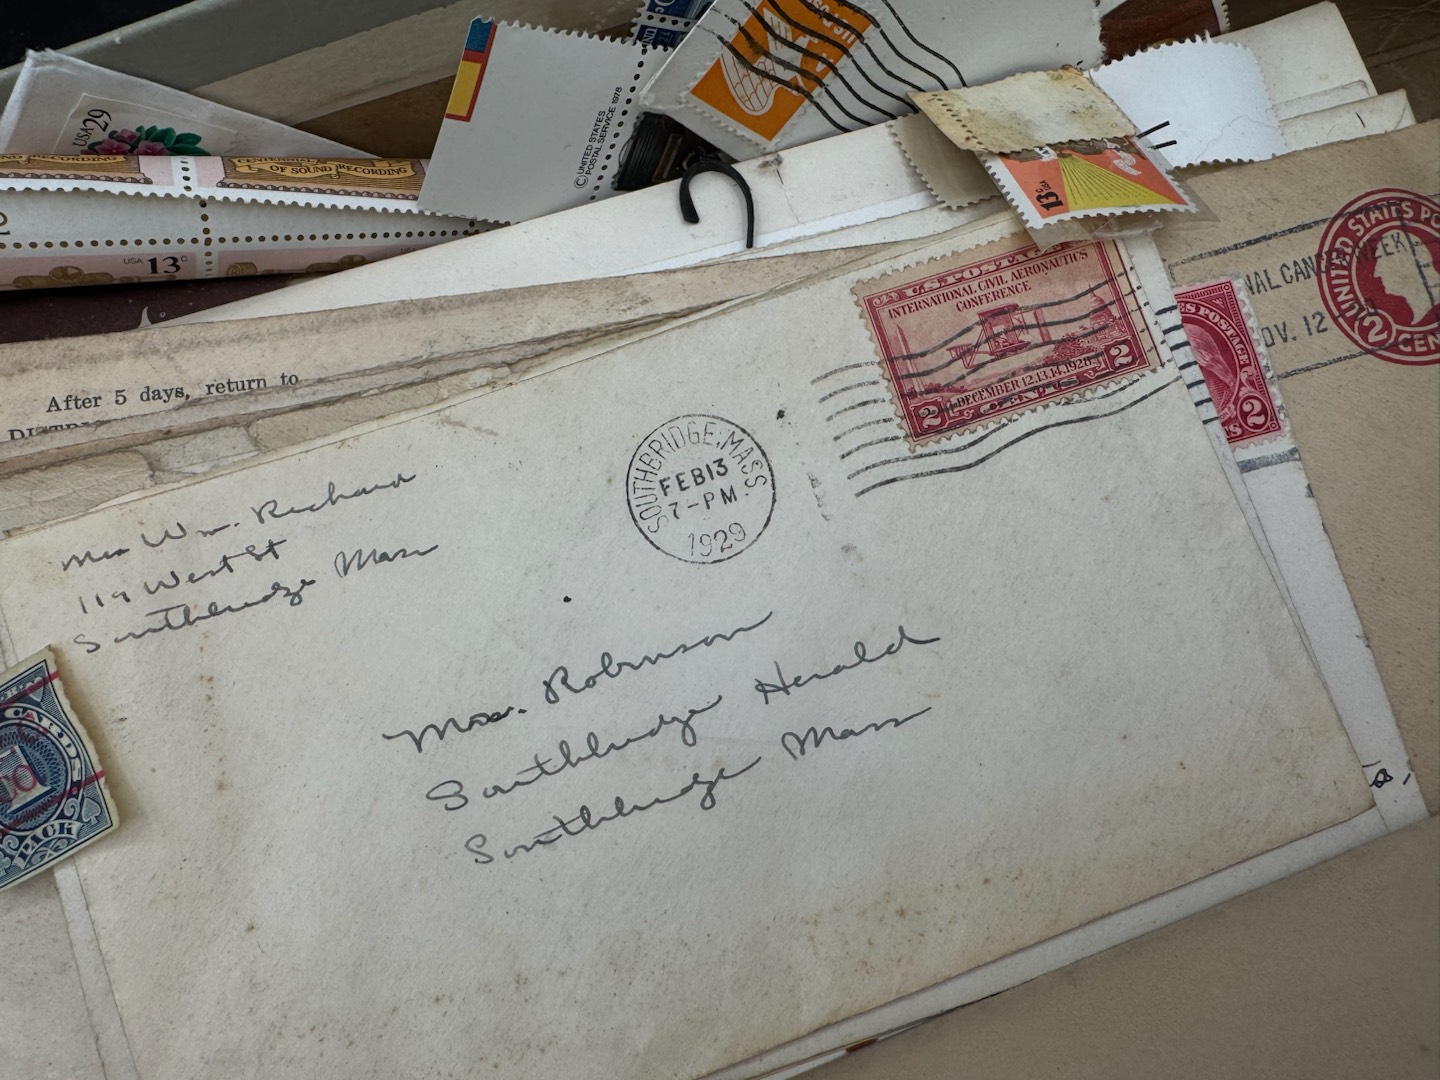 USA 29
CENTENNIAL
OF SOUND RECORDING
USA 13c
© UNITED STATES
POSTAL SERVICE 1978
13c
USA
After 5 days, return to
U.S. POSTAGE
INTERNATIONAL CIVIL AERONAUTICS
CONFERENCE
DECEMBER 12.13.14.1928
2 2
UNITED STATES PO
2 CEN
NAL CAN WEEK
OV. 12
S POSTAGE
2
SOUTHBRIDGE, MASS.
FEB 13
7-PM
1929
Mrs Wm. Richard
119 West St
Southbridge Mass
Mrs. Robinson
Southbridge Herald
Southbridge Mass
CARDS
PACK